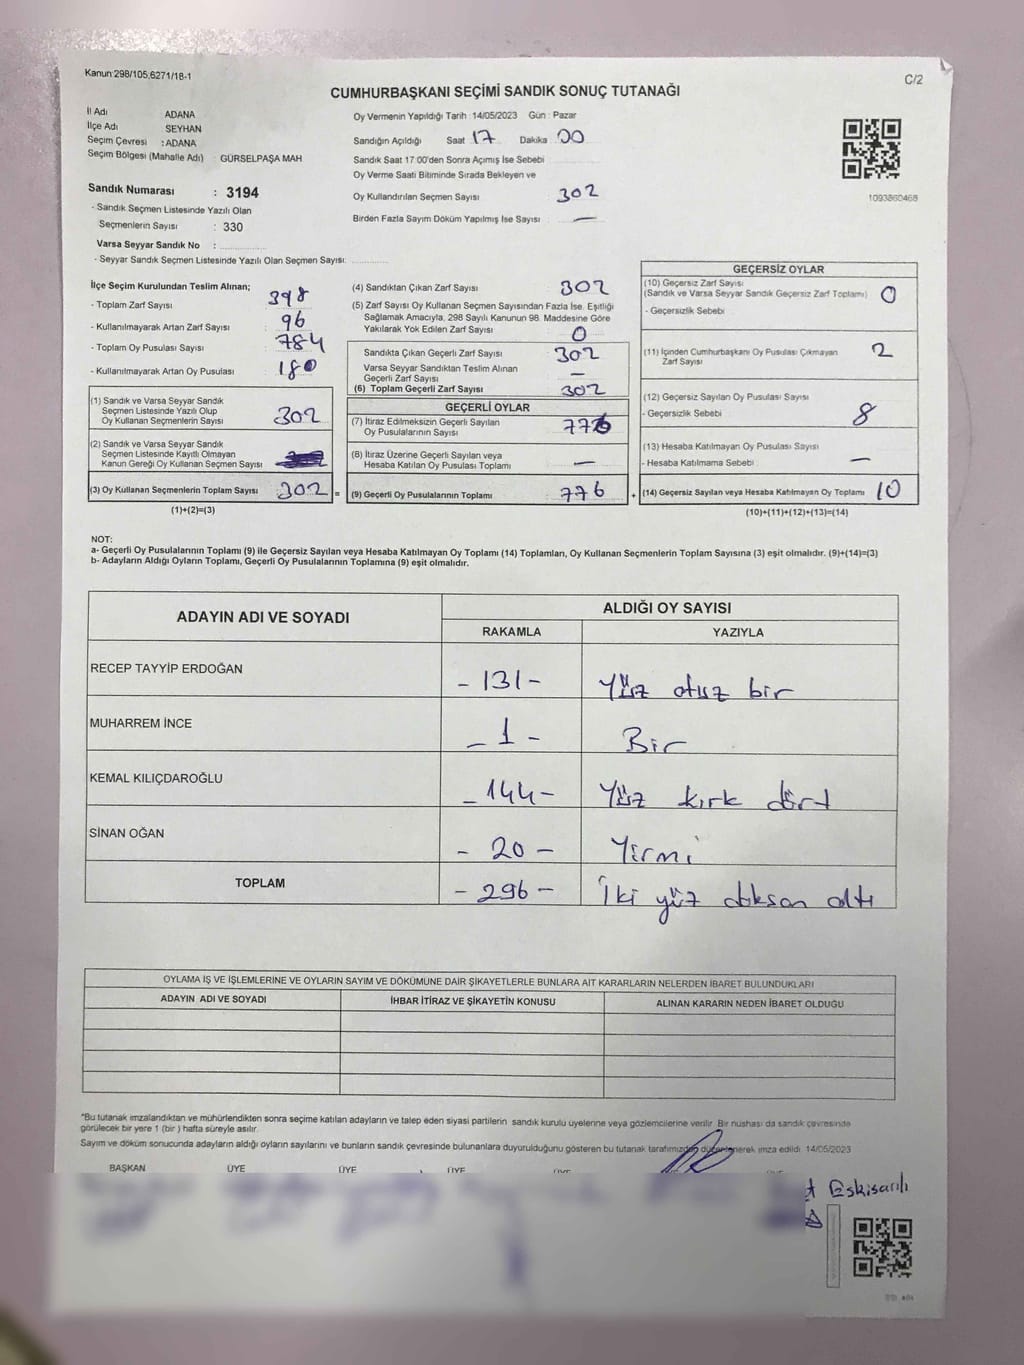 Kanun:298/105,6271/18-1
C/2
CUMHURBAŞKANI SEÇİMİ SANDIK SONUÇ TUTANAĞI
İl Adı ADANA
İlçe Adı SEYHAN
Seçim Çevresi : ADANA
Seçim Bölgesi (Mahalle Adı) : GÜRSELPAŞA MAH
Sandık Numarası : 3194
- Sandık Seçmen Listesinde Yazılı Olan
Seçmenlerin Sayısı : 330
Varsa Seyyar Sandık No :
- Seyyar Sandık Seçmen Listesinde Yazılı Olan Seçmen Sayısı:
Oy Vermenin Yapıldığı Tarih : 14/05/2023 Gün : Pazar
Sandığın Açıldığı Saat 17 Dakika 00
Sandık Saat 17:00'den Sonra Açımış İse Sebebi
Oy Verme Saati Bitiminde Sırada Bekleyen ve
Oy Kullandırılan Seçmen Sayısı 302
Birden Fazla Sayım Döküm Yapılmış İse Sayısı —
1093860468
İlçe Seçim Kurulundan Teslim Alınan;
- Toplam Zarf Sayısı 398
- Kullanılmayarak Artan Zarf Sayısı 96
- Toplam Oy Pusulası Sayısı 784
- Kullanılmayarak Artan Oy Pusulası 180
(1) Sandık ve Varsa Seyyar Sandık
Seçmen Listesinde Yazılı Olup
Oy Kullanan Seçmenlerin Sayısı 302
(2) Sandık ve Varsa Seyyar Sandık
Seçmen Listesinde Kayıtlı Olmayan
Kanun Gereği Oy Kullanan Seçmen Sayısı
(3) Oy Kullanan Seçmenlerin Toplam Sayısı 302 =
(1)+(2)=(3)
(4) Sandıktan Çıkan Zarf Sayısı 302
(5) Zarf Sayısı Oy Kullanan Seçmen Sayısından Fazla İse, Eşitliği
Sağlamak Amacıyla, 298 Sayılı Kanunun 98. Maddesine Göre
Yakılarak Yok Edilen Zarf Sayısı 0
Sandıkta Çıkan Geçerli Zarf Sayısı 302
Varsa Seyyar Sandıktan Teslim Alınan
Geçerli Zarf Sayısı —
(6) Toplam Geçerli Zarf Sayısı 302
GEÇERLİ OYLAR
(7) İtiraz Edilmeksizin Geçerli Sayılan
Oy Pusulalarının Sayısı 776
(8) İtiraz Üzerine Geçerli Sayılan veya
Hesaba Katılan Oy Pusulası Toplamı —
(9) Geçerli Oy Pusulalarının Toplamı 776 +
GEÇERSİZ OYLAR
(10) Geçersiz Zarf Sayısı
(Sandık ve Varsa Seyyar Sandık Geçersiz Zarf Toplamı) 0
- Geçersizlik Sebebi
(11) İçinden Cumhurbaşkanı Oy Pusulası Çıkmayan
Zarf Sayısı 2
(12) Geçersiz Sayılan Oy Pusulası Sayısı
- Geçersizlik Sebebi 8
(13) Hesaba Katılmayan Oy Pusulası Sayısı
- Hesaba Katılmama Sebebi —
(14) Geçersiz Sayılan veya Hesaba Katılmayan Oy Toplamı 10
(10)+(11)+(12)+(13)=(14)
NOT:
a- Geçerli Oy Pusulalarının Toplamı (9) ile Geçersiz Sayılan veya Hesaba Katılmayan Oy Toplamı (14) Toplamları, Oy Kullanan Seçmenlerin Toplam Sayısına (3) eşit olmalıdır. (9)+(14)=(3)
b- Adayların Aldığı Oyların Toplamı, Geçerli Oy Pusulalarının Toplamına (9) eşit olmalıdır.
ADAYIN ADI VE SOYADI
ALDIĞI OY SAYISI
RAKAMLA YAZIYLA
RECEP TAYYİP ERDOĞAN - 131 - Yüz otuz bir
MUHARREM İNCE - 1 - Bir
KEMAL KILIÇDAROĞLU - 144 - Yüz kırk dört
SİNAN OĞAN - 20 - Yirmi
TOPLAM - 296 - İki yüz doksan altı
OYLAMA İŞ VE İŞLEMLERİNE VE OYLARIN SAYIM VE DÖKÜMÜNE DAİR ŞİKAYETLERLE BUNLARA AİT KARARLARIN NELERDEN İBARET BULUNDUKLARI
ADAYIN ADI VE SOYADI İHBAR İTİRAZ VE ŞİKAYETİN KONUSU ALINAN KARARIN NEDEN İBARET OLDUĞU
*Bu tutanak imzalandıktan ve mühürlendikten sonra seçime katılan adayların ve talep eden siyasi partilerin sandık kurulu üyelerine veya gözlemcilerine verilir. Bir nüshası da sandık çevresinde
görülecek bir yere 1 (bir ) hafta süreyle asılır.
Sayım ve döküm sonucunda adayların aldığı oyların sayılarını ve bunların sandık çevresinde bulunanlara duyurulduğunu gösteren bu tutanak tarafımızdan düzenlenerek imza edildi. 14/05/2023
BAŞKAN ÜYE ÜYE ÜYE
Eskisarılı